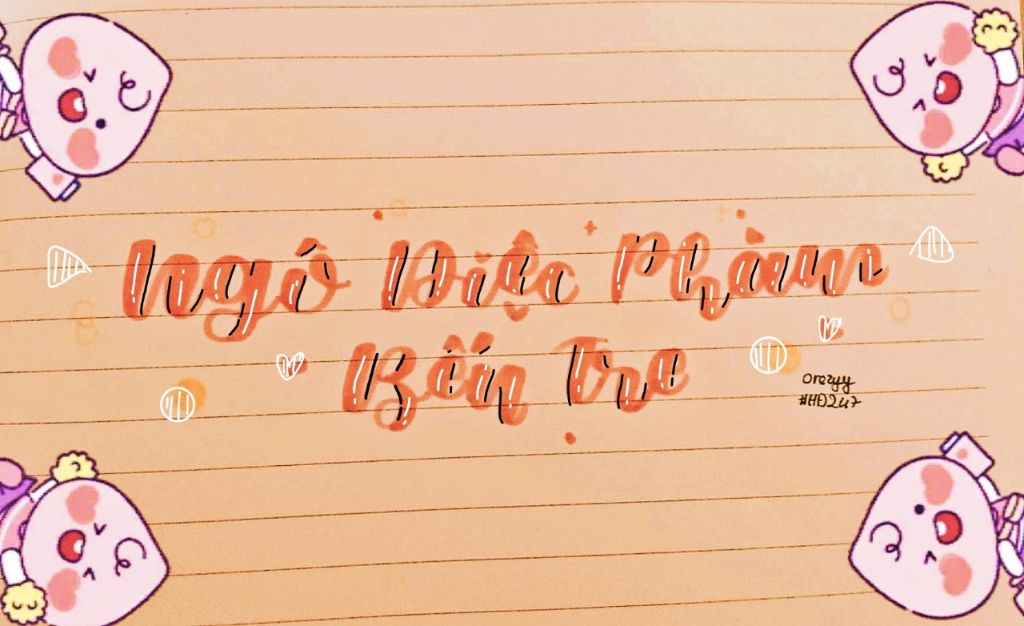 Ngô Diệc Phàm
Bến Tre
orezyy
#HĐ247